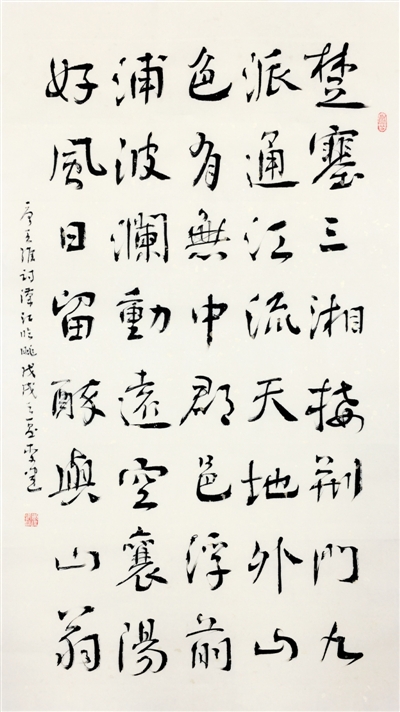 楚塞三湘接荆門九
派通江流天地外山
色有無中郡邑浮前
浦波瀾動遠空襄陽
好風日留醉與山翁
唐王維詩漢江臨眺戊戌之夏李